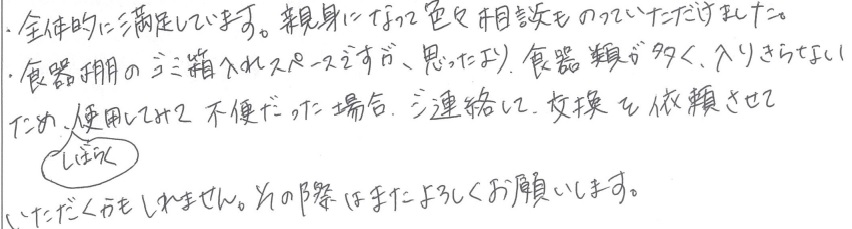 ・全体的に満足しています。親身になって色々相談ものっていただけました。
・食器棚のゴミ箱入れスペースですが、思ったより、食器類が多く、入りきらない
ため、使用してみて不便だった場合、ご連絡して、交換を依頼させて
しばらく
いただくかもしれません。その際はまたよろしくお願いします。